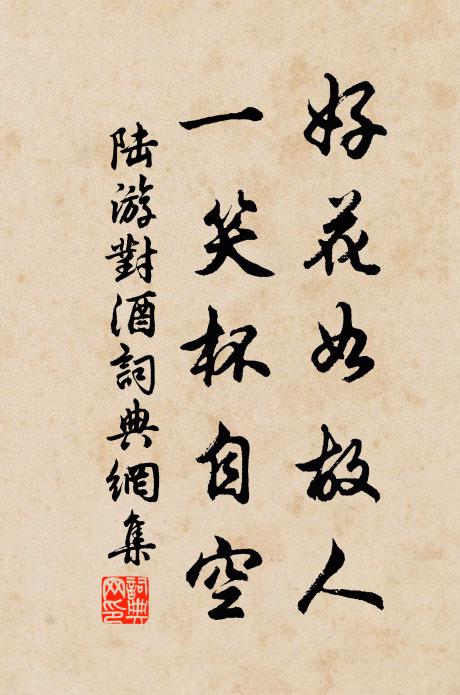 好花如故人
一笑杯自空
陆游對酒詞典網集
詞典网印